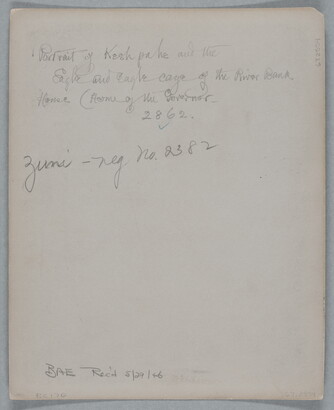 Portrait of Keshpahe and the
Eagle and Eagle cage of the River Bank
House (House of the Governor
2862.
Zuni - neg No. 2382
BAE Rec'd 5/29/46